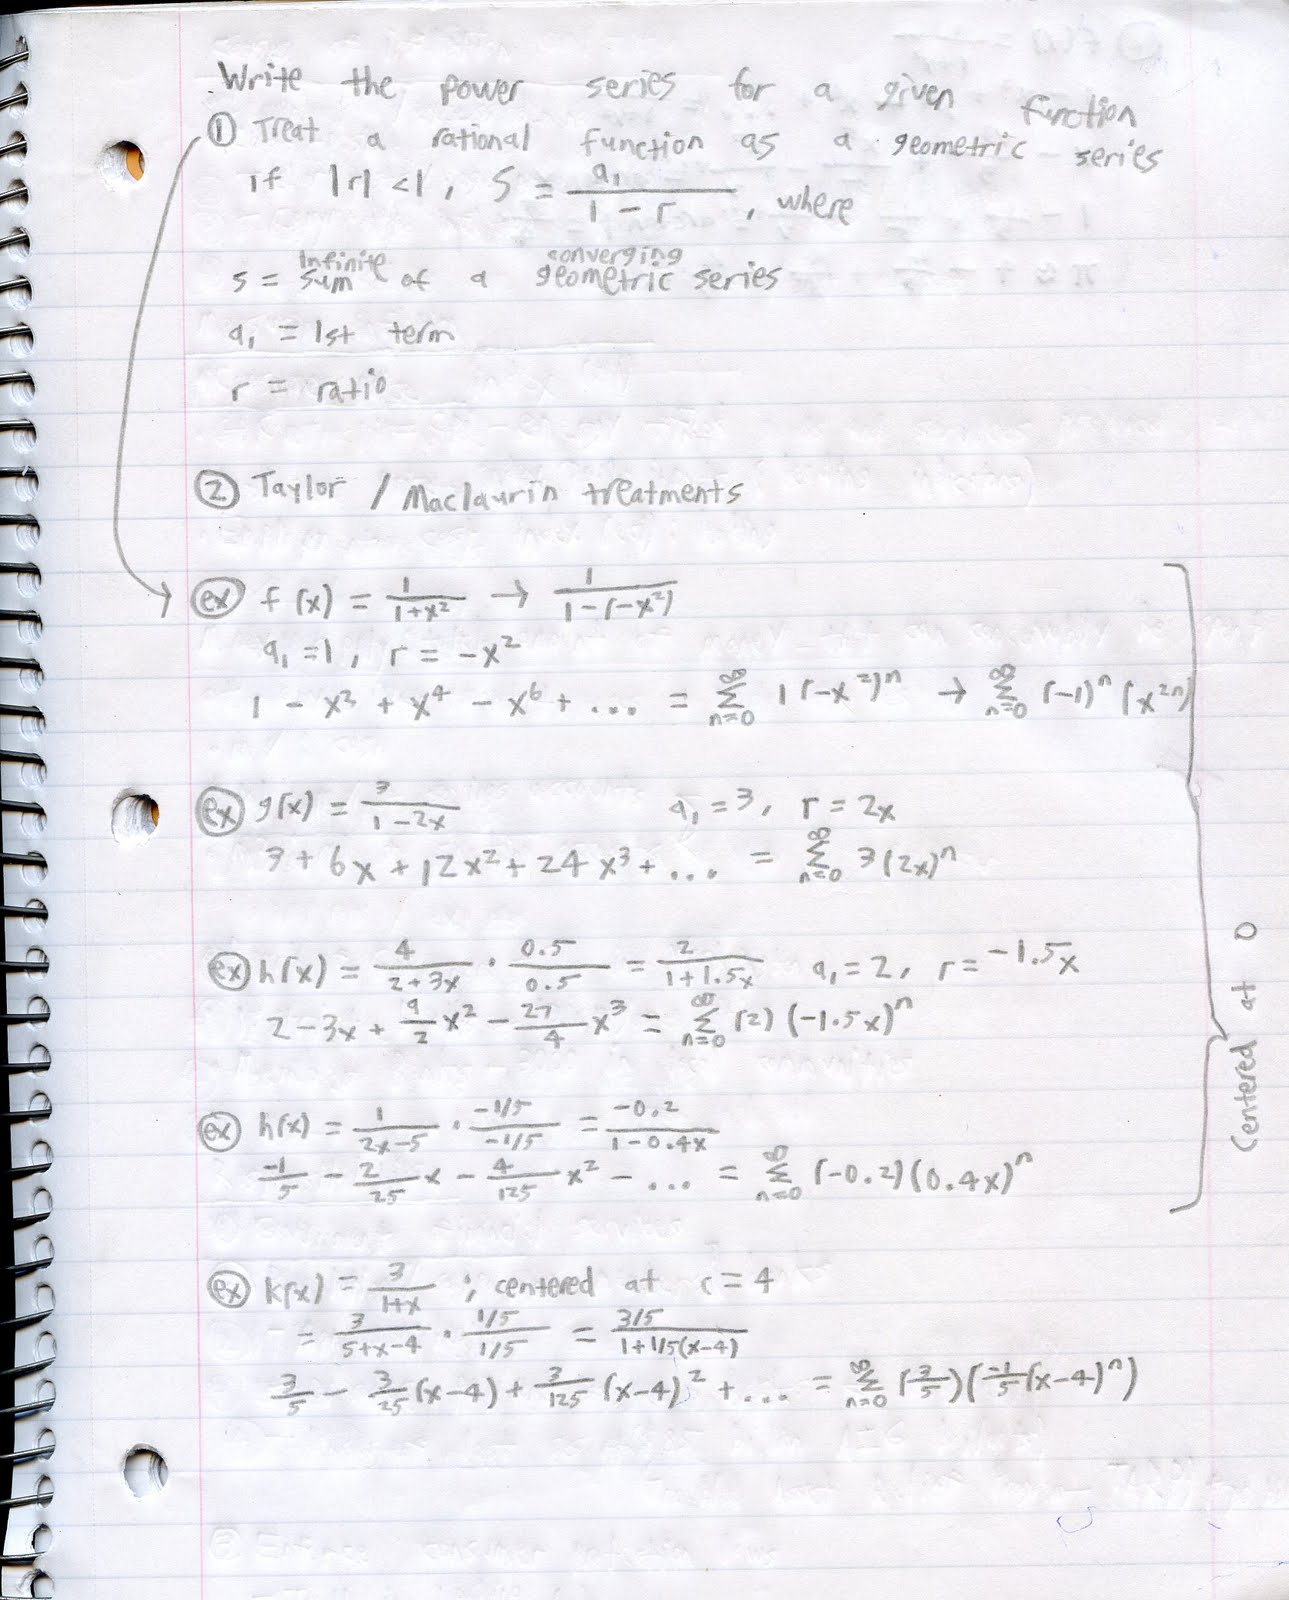 Write the power series for a given function
① Treat a rational function as a geometric series
if |r| < 1, S = a₁/(1 - r), where
s = infinite sum of a converging geometric series
a₁ = 1st term
r = ratio
② Taylor / Maclaurin treatments
ex f(x) = 1/(1+x²) → 1/(1-(-x²))
a₁ = 1, r = -x²
1 - x² + x⁴ - x⁶ + ... = ∞ Σ n=0 1(-x²)ⁿ → ∞ Σ n=0 (-1)ⁿ (x²ⁿ)
ex g(x) = 3/(1-2x) a₁ = 3, r = 2x
3 + 6x + 12x² + 24x³ + ... = ∞ Σ n=0 3(2x)ⁿ
ex h(x) = 4/(2+3x) · 0.5/0.5 = 2/(1+1.5x) a₁ = 2, r = -1.5x
2 - 3x + 9/2 x² - 27/4 x³ = ∞ Σ n=0 (2)(-1.5x)ⁿ
ex h(x) = 1/(2x-5) · (-1/5)/(-1/5) = -0.2/(1-0.4x)
-1/5 - 2/25 x - 4/125 x² - ... = ∞ Σ n=0 (-0.2)(0.4x)ⁿ
Centered at 0
ex k(x) = 3/(1+x) ; centered at c = 4
= 3/(5+x-4) · (1/5)/(1/5) = (3/5)/(1+1/5(x-4))
3/5 - 3/25 (x-4) + 3/125 (x-4)² + ... = ∞ Σ n=0 (3/5)(-1/5(x-4)ⁿ)